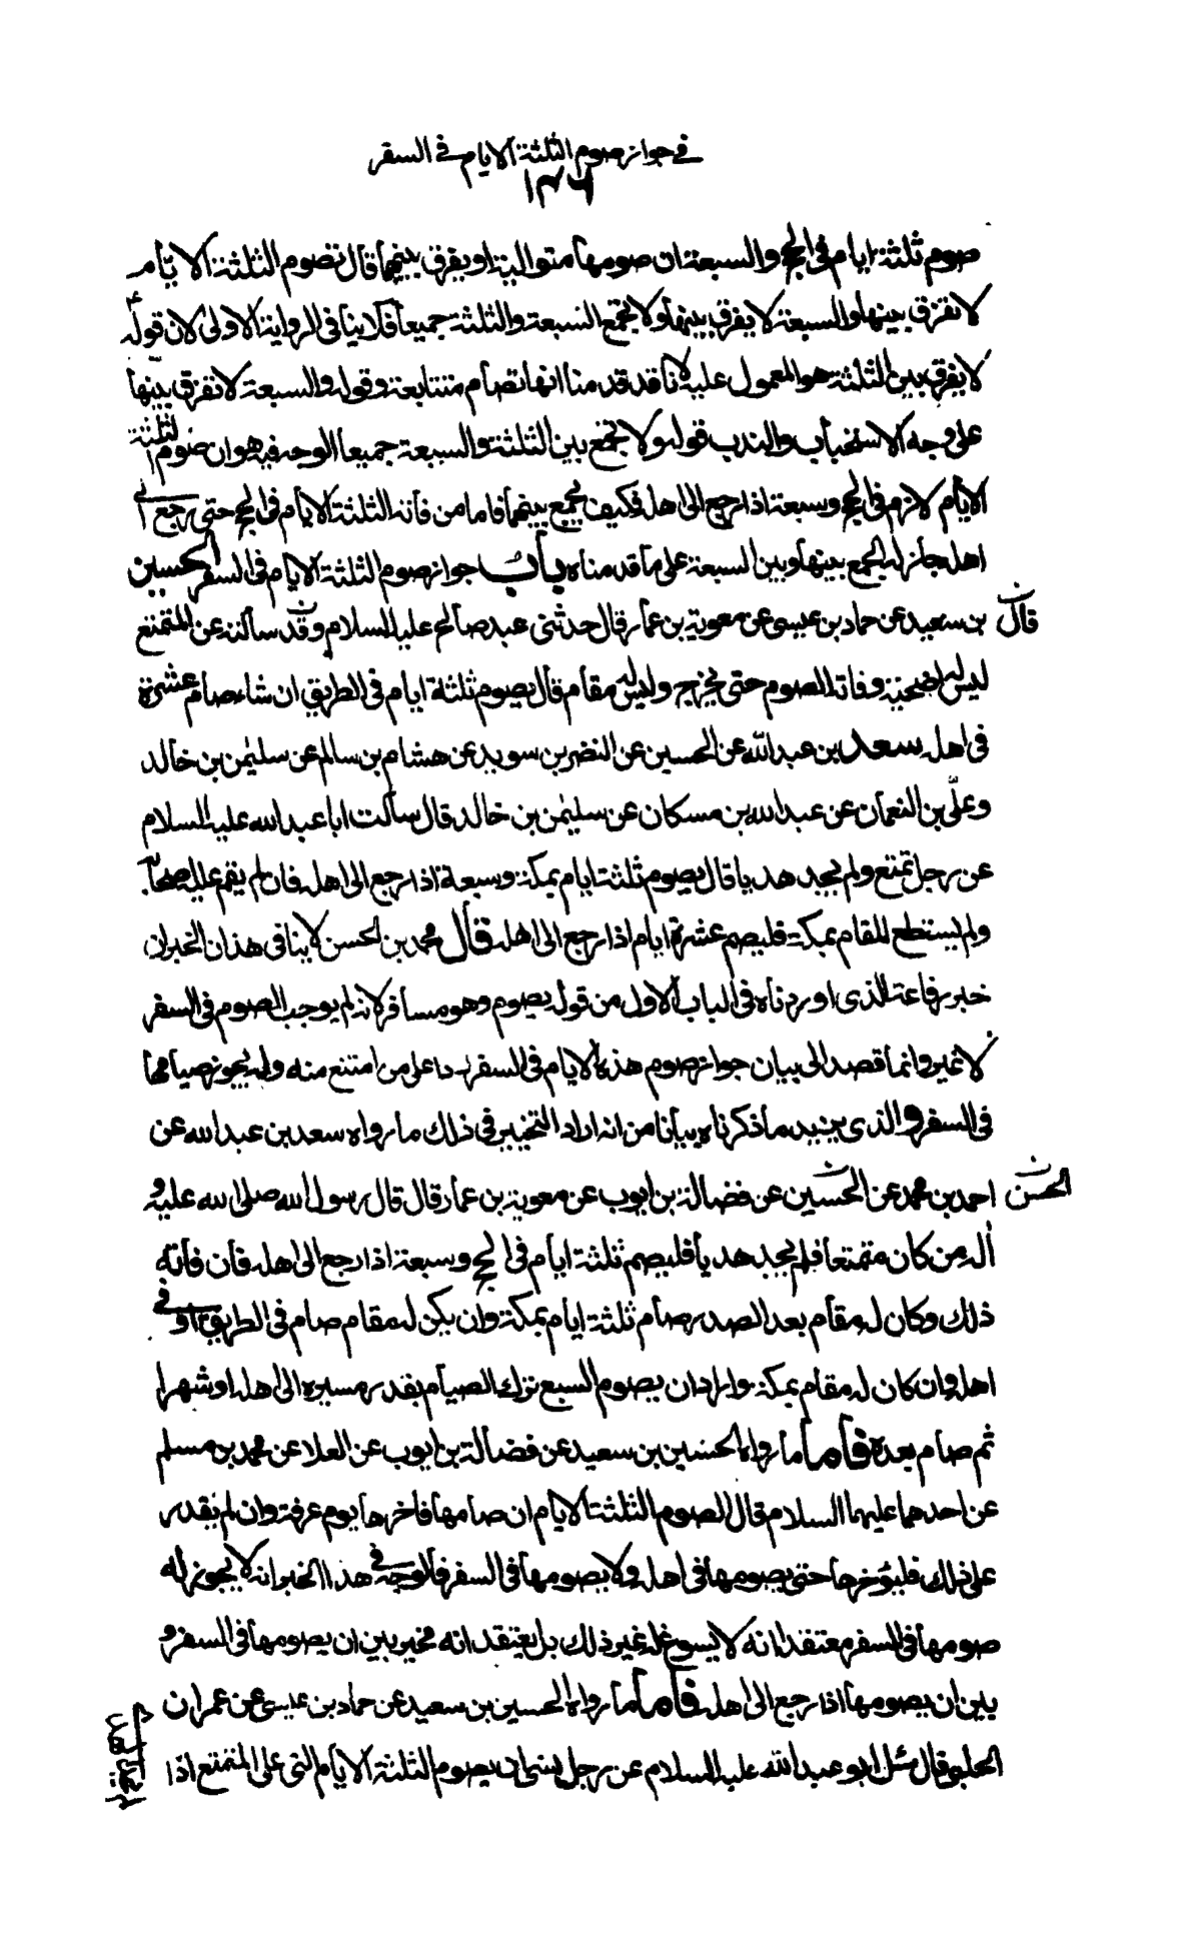 في جواز صوم الثلثة الايام في السفر
١٣٦
صوم ثلثة ايام في الحج والسبعة ان صومها متوالية او يفرق بينهما قال تصوم الثلثة الايام
لا تفرق بينها والسبعة لا يفرق بينها ولا تجمع السبعة والثلثة جميعا فلا ينافي الرواية الاولى لان قوله ع
لا يفرق بين الثلثة هو المعمول عليه لانا قد قدمنا انها تصام متتابعة وقوله والسبعة لا تفرق بينها
على وجه الاستحباب والندب قوله ولا تجمع بين الثلثة والسبعة جميعا الوجه فيه هو ان صوم الثلثة
الايام لازم في الحج وسبعة اذا رجع الى اهله فكيف يجمع بينهما فاما من فاته الثلثة الايام في الحج حتى يرجع الى
اهله جاز له الجمع بينها وبين السبعة على ما قدمناه باب جواز صوم الثلثة الايام في السفر الحسين
بن سعيد عن حماد بن عيسى عن معوية بن عمار قال حدثني عبد صالح عليه السلام وقد سألته عن المتمتع
قال ن
ليس له اضحية وفاته الصوم حتى يخرج وليس له مقام قال يصوم ثلثة ايام في الطريق ان شاء صام عشرة
في اهله سعد بن عبد الله عن الحسين عن النضر بن سويد عن هشام بن سالم عن سليمن بن خالد
وعلي بن النعمان عن عبد الله بن مسكان عن سليمن بن خالد قال سألت ابا عبد الله عليه السلام
عن رجل تمتع ولم يجد هديا قال يصوم ثلثة ايام بمكة وسبعة اذا رجع الى اهله فان لم يقم عليه اصحابه
ولم يستطع المقام بمكة فليصم عشرة ايام اذا رجع الى اهله قال محمد بن الحسن لا ينافي هذان الخبران
خبر رفاعة الذي اوردناه في الباب الاول من قوله يصوم وهو مسافر لانه لم يوجب الصوم في السفر
لا غير وانما قصد الى بيان جواز صوم هذه الايام في السفر ردا على من امتنع منه ولم يجوز صيامها
في السفر والذي يزيد ما ذكرناه بيانا من انه اراد التخيير في ذلك ما رواه سعد بن عبد الله عن
احمد بن محمد عن الحسين عن فضالة بن ايوب عن معوية بن عمار قال قال رسول الله صلى الله عليه و
الحسن ن
آله من كان متمتعا فلم يجد هديا فليصم ثلثة ايام في الحج وسبعة اذا رجع الى اهله فان فاته
ذلك وكان له مقام بعد الصدر صام ثلثة ايام بمكة وان يكن له مقام صام في الطريق او في
اهله وان كان له مقام بمكة واراد ان يصوم السبع ترك الصيام بقدر مسيره الى اهله او شهرا
ثم صام بعده فاما ما رواه الحسين بن سعيد عن فضالة بن ايوب عن العلا عن محمد بن مسلم
عن احدهما عليهما السلام قال الصوم الثلثة الايام ان صامها فاخرها يوم عرفة وان لم يقدر
على ذلك فليؤخرها حتى يصومها في اهله ولا يصومها في السفر فالوجه في هذا الخبر انه لا يجوز له
صومها في السفر معتقدا انه لا يسوغ له غير ذلك بل يعتقد انه مخير بين ان يصومها في السفر و
بين ان يصومها اذا رجع الى اهله فاما ما رواه الحسين بن سعيد عن حماد بن عيسى عن عمران
الحلبي قال سئل ابو عبد الله عليه السلام عن رجل نسي ان يصوم الثلثة الايام التي على المتمتع اذا